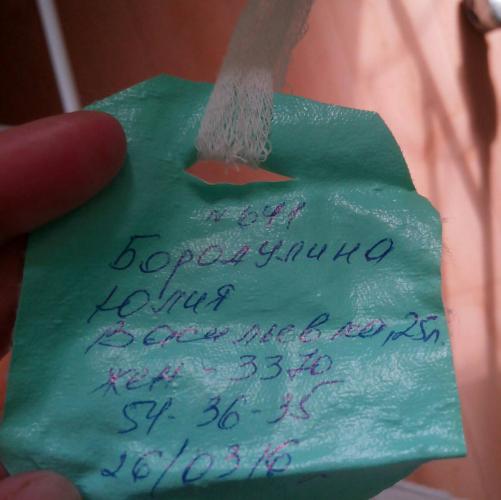 № 641
Бородулина
Юлия
Васильевна, 25л.
жен - 3370
54-36-35
26/03/16